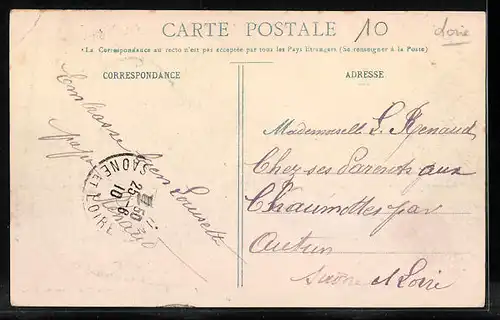 CARTE POSTALE
10
Loire
La Correspondance au recto n'est pas acceptée par tous les Pays Etrangers (Se renseigner à la Poste)
CORRESPONDANCE
ADRESSE
Embrasse bien Louisette
papa
Renaud
SAONE ET LOIRE
25-8
10
Mademoiselle L. Renaud
Chez ses Parents aux
Chaumottes par
Autun
Saône et Loire